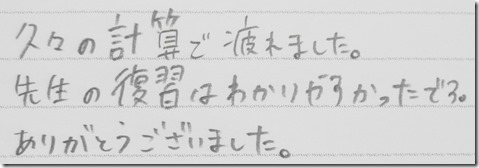 久々の計算で疲れました。
先生の復習はわかりやすかったです。
ありがとうございました。